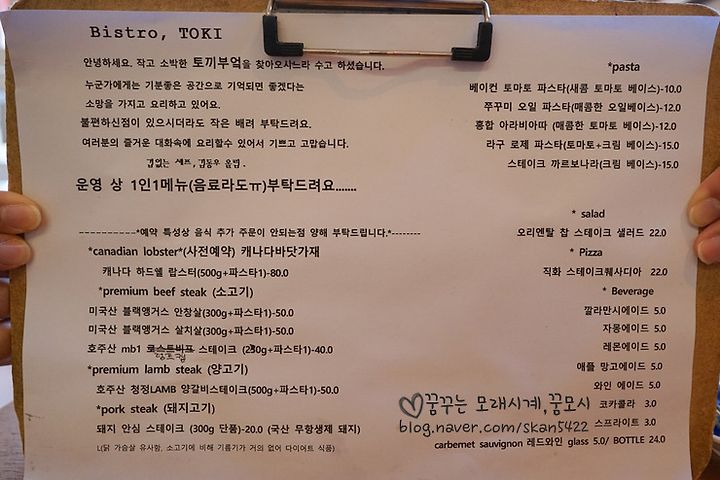 Bistro, TOKI
안녕하세요. 작고 소박한 토끼부엌을 찾아오시느라 수고 하셨습니다.
누군가에게는 기분좋은 공간으로 기억되면 좋겠다는
소망을 가지고 요리하고 있어요.
불편하신점이 있으시더라도 작은 배려 부탁드려요.
여러분의 즐거운 대화속에 요리할수 있어서 기쁘고 고맙습니다.
겁없는 셰프, 김동우 올림.
운영 상 1인1메뉴(음료라도ㅠ)부탁드려요.......
----------*예약 특성상 음식 추가 주문이 안되는점 양해 부탁드립니다.*--------
*canadian lobster*(사전예약) 캐나다바닷가재
캐나다 하드쉘 랍스터(500g+파스타1)-80.0
*premium beef steak (소고기)
미국산 블랙앵거스 안창살(300g+파스타1)-50.0
미국산 블랙앵거스 살치살(300g+파스타1)-50.0
호주산 mb1 로스트비프 스테이크 (230g+파스타1)-40.0
*premium lamb steak (양고기)
호주산 청정LAMB 양갈비스테이크(500g+파스타1)-50.0
*pork steak (돼지고기)
돼지 안심 스테이크 (300g 단품)-20.0 (국산 무항생제 돼지)
L(닭 가슴살 유사함, 소고기에 비해 기름기가 거의 없어 다이어트 식품)
*pasta
베이컨 토마토 파스타(새콤 토마토 베이스)-10.0
쭈꾸미 오일 파스타(매콤한 오일베이스)-12.0
홍합 아라비아따 (매콤한 토마토 베이스)-12.0
라구 로제 파스타(토마토+크림 베이스)-15.0
스테이크 까르보나라(크림 베이스)-15.0
* salad
오리엔탈 찹 스테이크 샐러드 22.0
* Pizza
직화 스테이크퀘사디아 22.0
* Beverage
깔라만시에이드 5.0
자몽에이드 5.0
레몬에이드 5.0
애플 망고에이드 5.0
와인 에이드 5.0
코카콜라 3.0
스프라이트 3.0
carbernet sauvignon 레드와인 glass 5.0/ BOTTLE 24.0
♡꿈꾸는 모래시계,꿈모시
blog.naver.com/skan5422